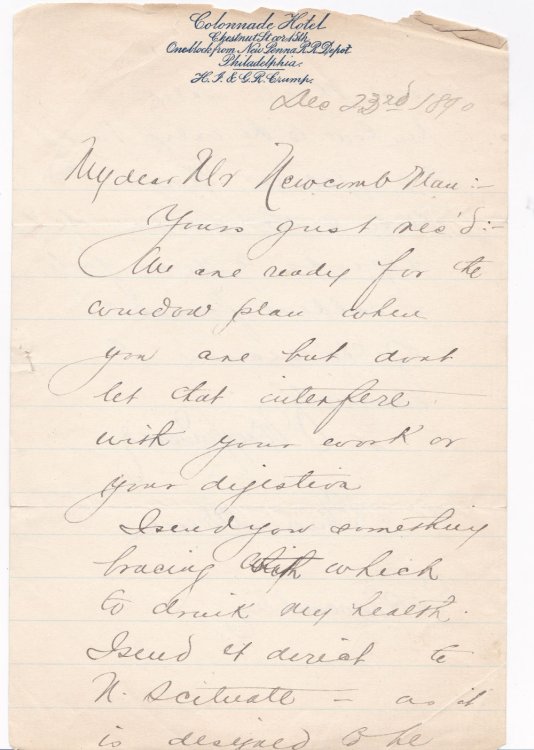 Colonnade Hotel
Chestnut St cor 15th
One block from New Penna R.R. Depot
Philadelphia.
H. J. & G. R. Crump.
Dec 23rd 1890
My dear Mr Newcomb Man :-
Yours just rec'd :-
We are ready for the
window plan when
you are but dont
let that interfere
with your work or
your digestion
I send you something
bracing which
to drink my health.
I send it direct to
N. Scituate - as it
is designed to be